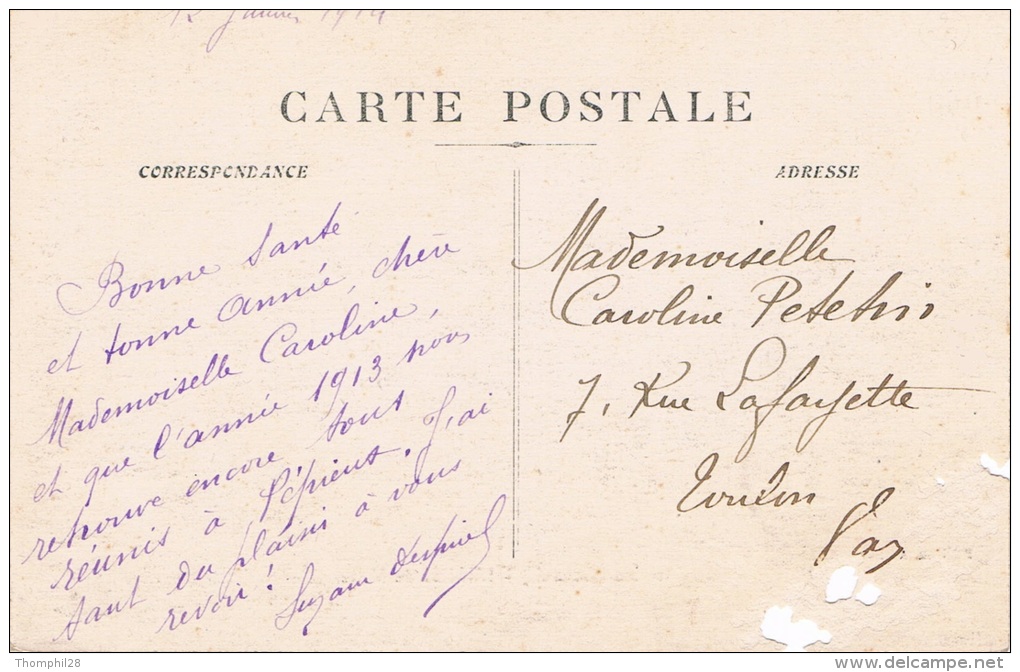 CARTE POSTALE
CORRESPONDANCE
Bonne Santé
et bonne année, chère
Mademoiselle Caroline,
et que l'année 1913 nous
retrouve encore tous
réunis à l'épient. J'ai
tant du plaisir à vous
revoir!
ADRESSE
Mademoiselle
Caroline Petetin
7, Rue Lafayette
Toulon
Var
Thomphil28
delcampe.net